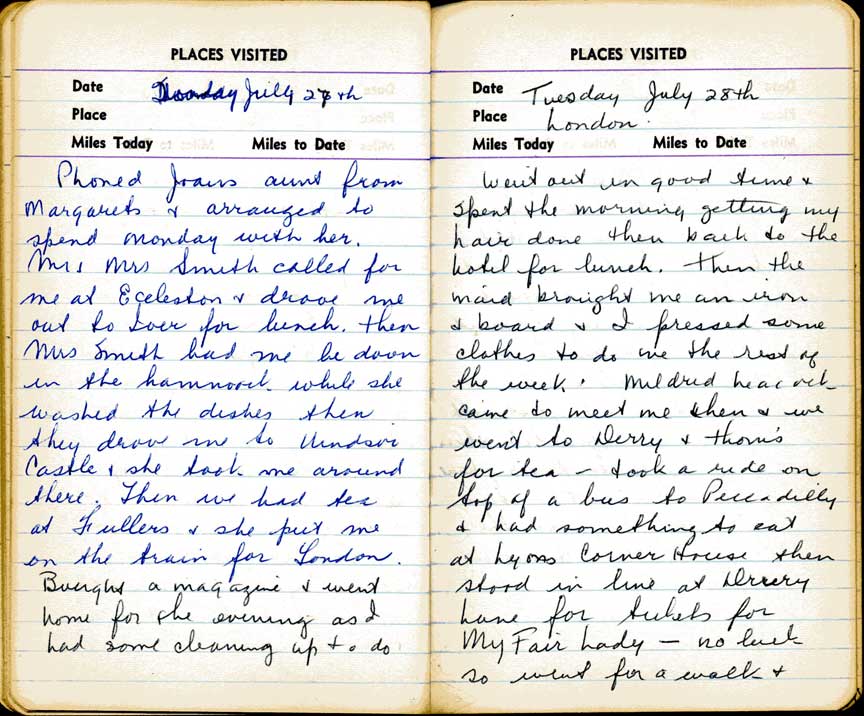 PLACES VISITED
Date Monday July 27th
Place
Miles Today Miles to Date
Phoned Joans aunt from
Margarets & arranged to
spend monday with her.
Mr & Mrs Smith called for
me at Eccleston & drove me
out to Iver for lunch. Then
Mrs Smith had me lie down
in the hammock while she
washed the dishes then
they drove me to Windsor
Castle & she took me around
there. Then we had tea
at Fullers & she put me
on the train for London.
Bought a magazine & went
home for the evening as I
had some cleaning up to do
PLACES VISITED
Date Tuesday July 28th
Place London.
Miles Today Miles to Date
Went out in good time &
spent the morning getting my
hair done then back to the
hotel for lunch. Then the
maid brought me an iron
& board & I pressed some
clothes to do me the rest of
the week. Mildred
came to meet me then & we
went to Derry & Thom's
for tea - took a ride on
top of a bus to Piccadilly
& had something to eat
at Lyons Corner House then
stood in line at Drury
Lane for tickets for
My Fair Lady - no luck
so went for a walk &